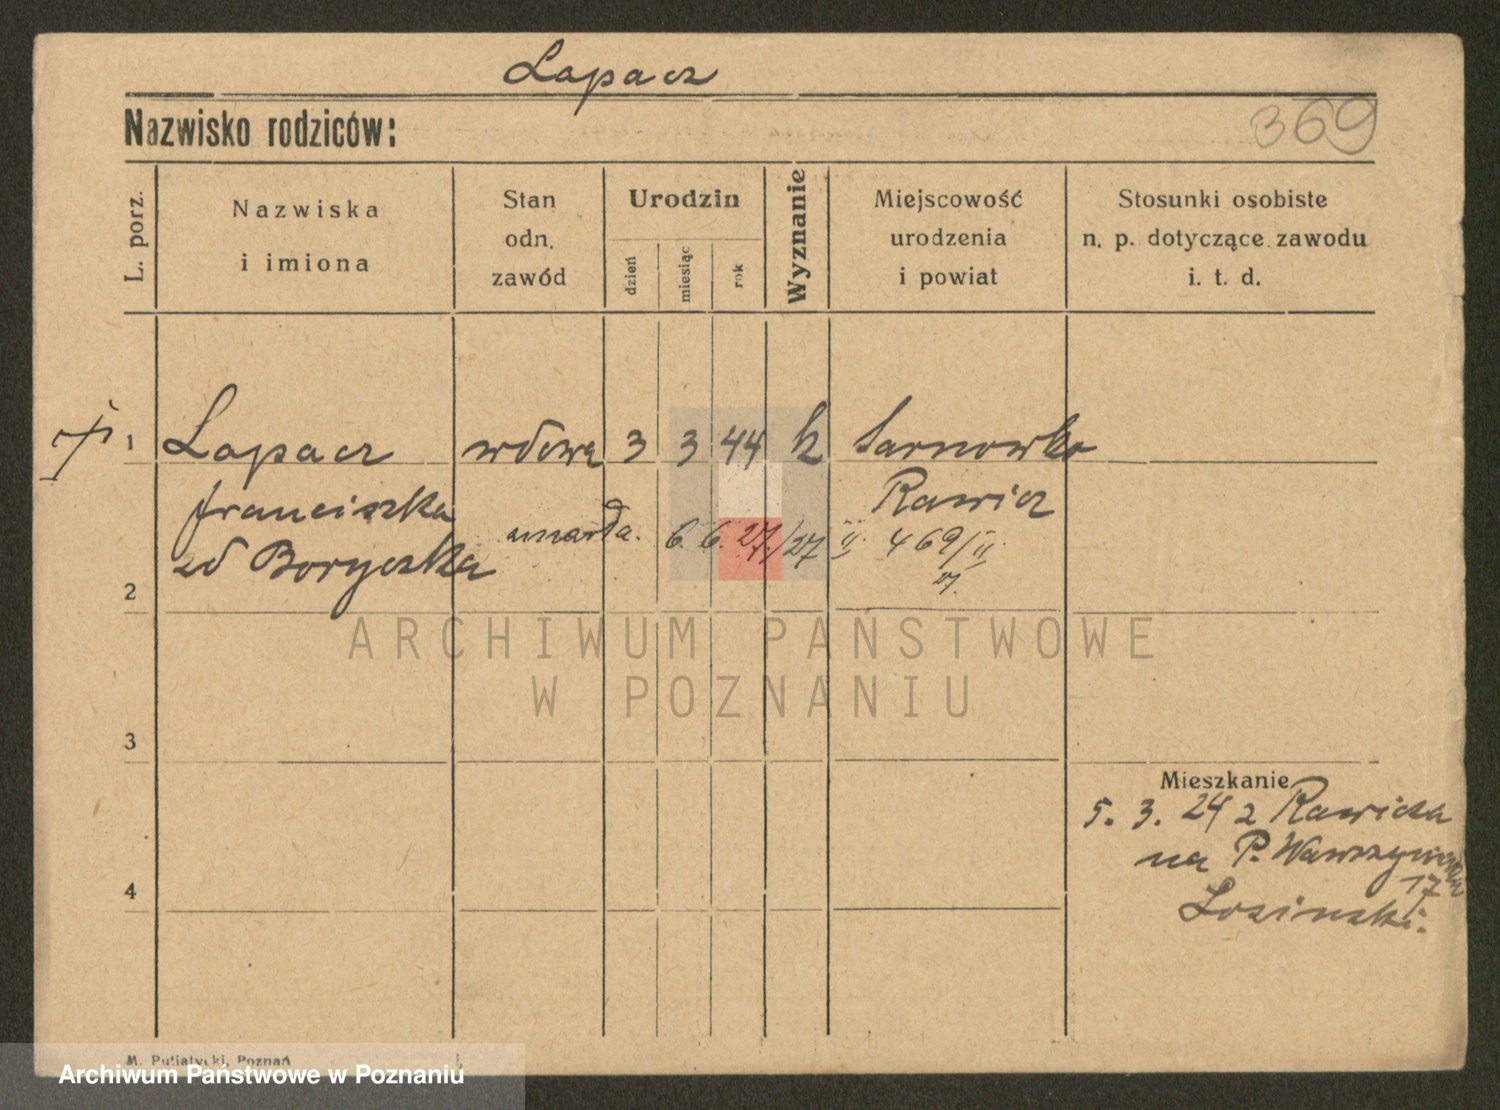 Lapacz
Nazwisko rodziców:
369
L. porz.
Nazwiska
i imiona
Stan
odn.
zawód
Urodzin
dzień
miesiąc
rok
Wyznanie
Miejscowość
urodzenia
i powiat
Stosunki osobiste
n. p. dotyczące zawodu
i. t. d.
1 Lapacz wdowa 3 3 44 k Sarnowko
franciszka Rawicz
umarła. 6. 6. 27. /27 II. 469/II
27.
zd Boryczka
2
ARCHIWUM PAŃSTWOWE
W POZNANIU
3
Mieszkanie
5. 3. 24 z Rawicza
na P. Wawrzyniaka
17
4
Losinski.
M. Putiatycki, Poznań
Archiwum Państwowe w Poznaniu